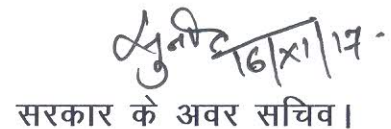 सुनील 16/XI/17
सरकार के अवर सचिव।